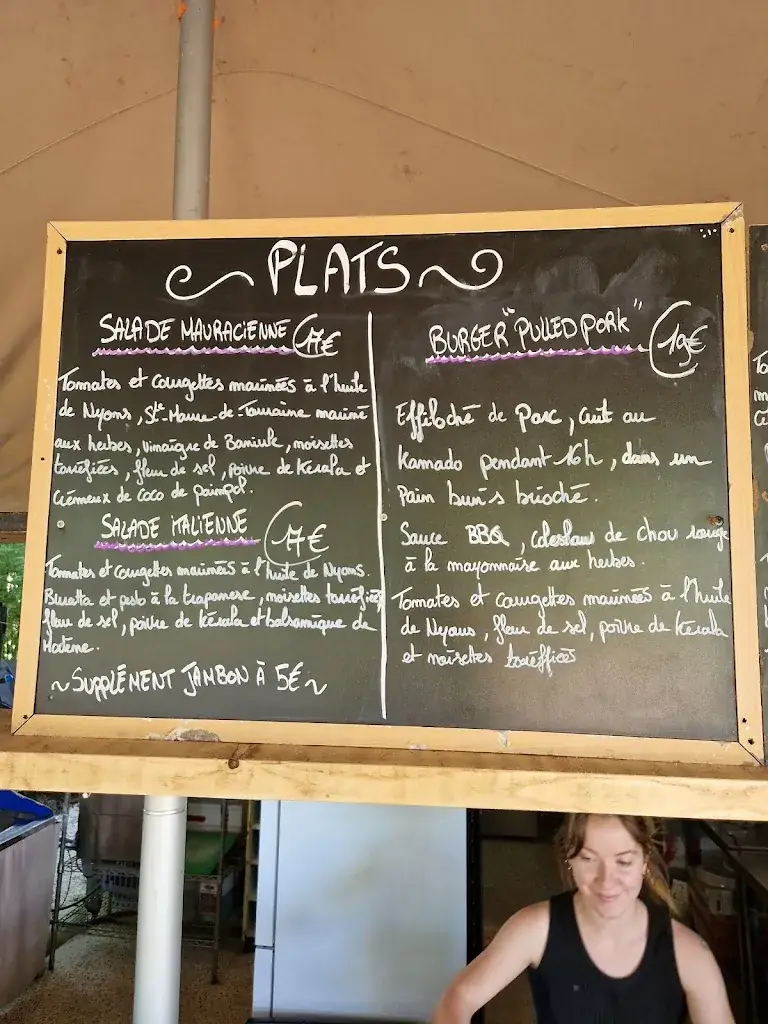 PLATS
SALADE MAURACIENNE 17€
Tomates et courgettes marinées à l'huile
de Nyons, Ste-Maure-de-Touraine mariné
aux herbes, vinaigre de Banyuls, noisettes
torréfiées, fleur de sel, poivre de Kérala et
crémeux de coco de paimpol.
SALADE ITALIENNE 17€
Tomates et courgettes marinées à l'huile de Nyons.
Buratta et pesto à la trapanese, noisettes torréfiées
fleur de sel, poivre de Kérala et balsamique de
Modène.
~SUPPLÉMENT JAMBON À 5€~
BURGER "PULLED PORK" 19€
Effiloché de Porc, cuit au
Kamado pendant 16h, dans un
Pain bun's brioché.
Sauce BBQ, coleslaw de chou rouge
à la mayonnaise aux herbes.
Tomates et courgettes marinées à l'huile
de Nyons, fleur de sel, poivre de Kérala
et noisettes torréffiées